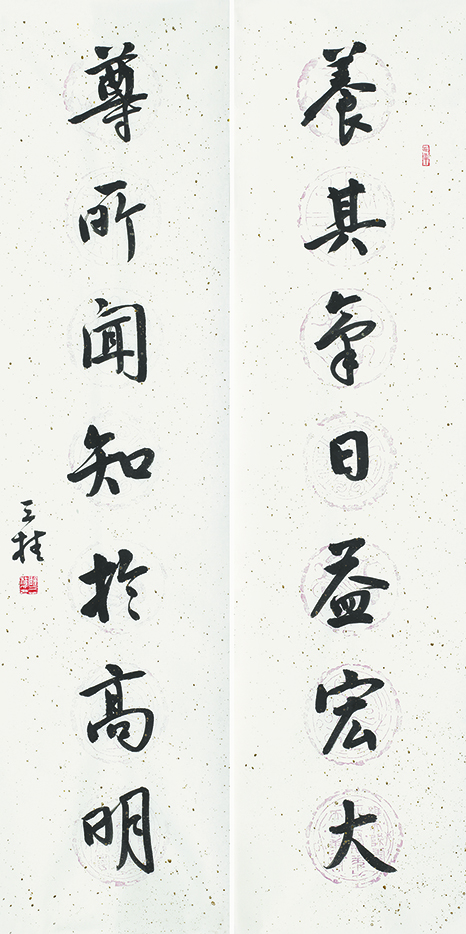 養其氣日益宏大
尊所聞知於高明
三桂